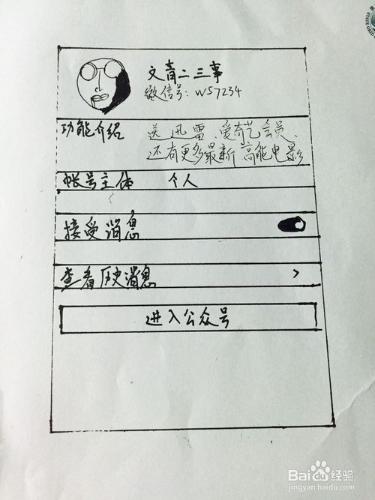 文青二三事
微信号: ws7234
功能介绍 送迅雷、爱奇艺会员、
还有更多最新高能电影
帐号主体 个人
接受消息
查看历史消息 >
进入公众号
Baidu经验
jingyan.baidu.com